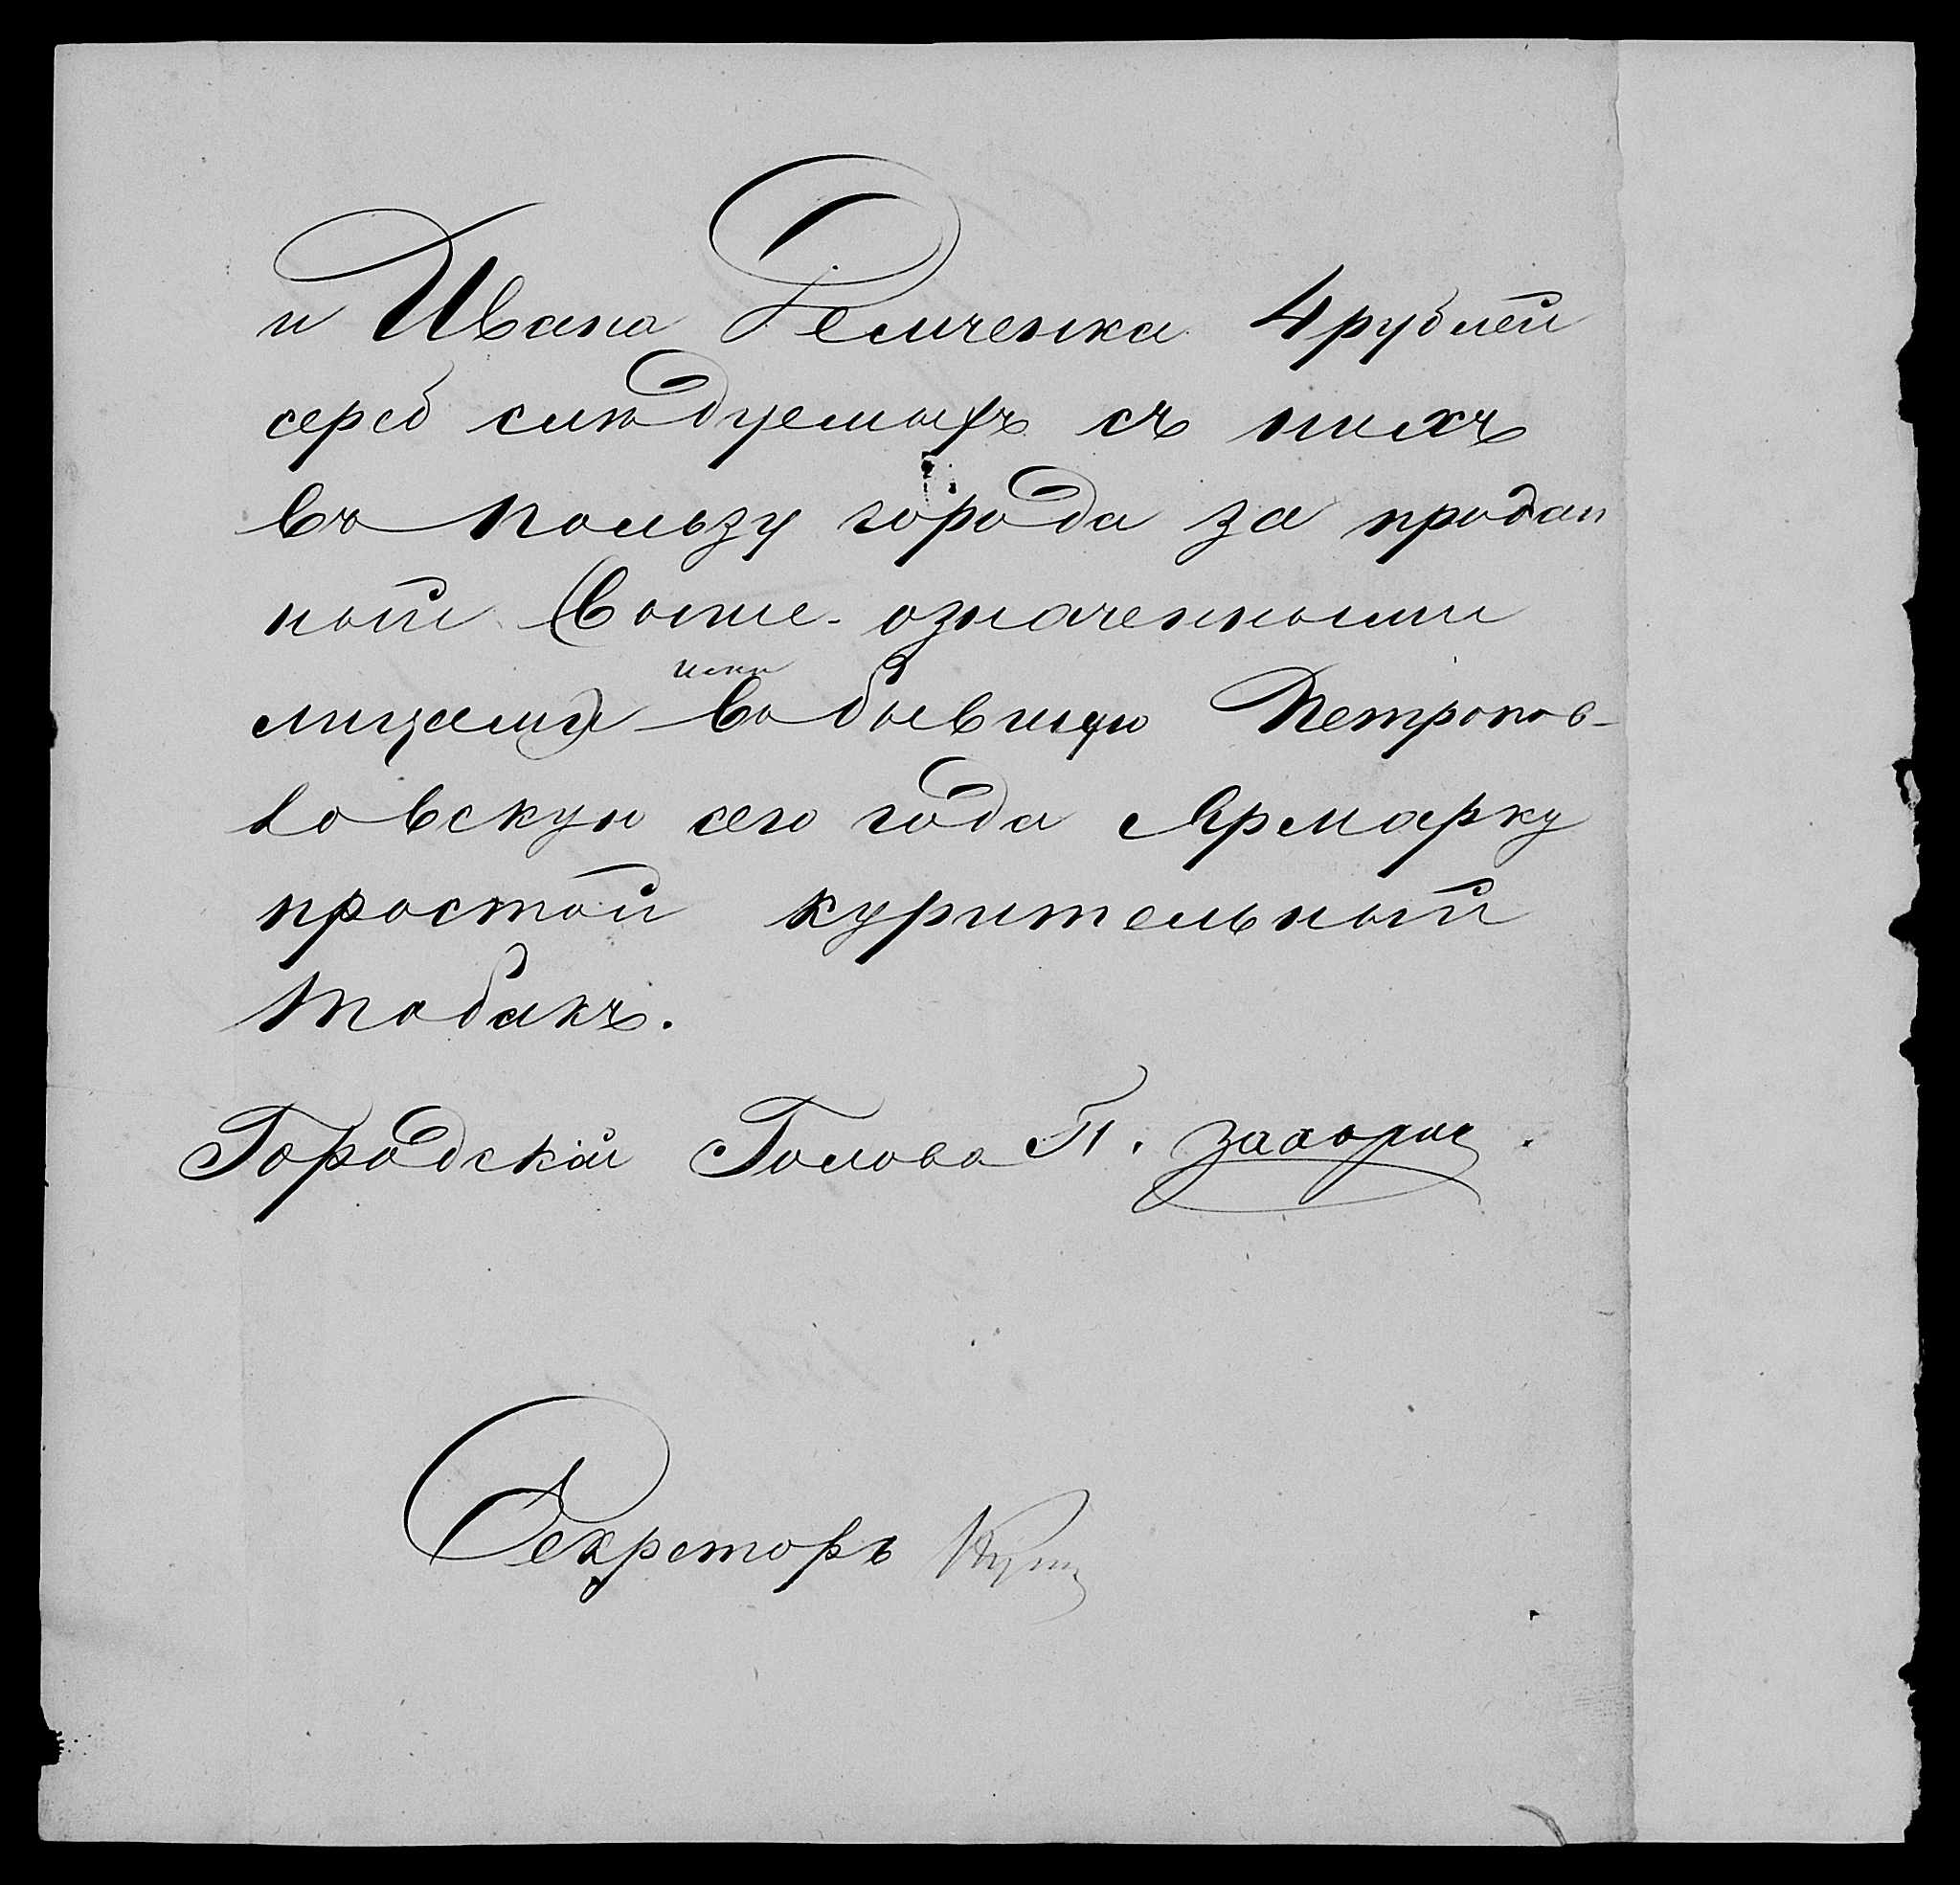 и Ивана Демченка 4 рублей
сереб слѣдуемыхъ съ нихъ
въ пользу города за продан
ный (выше-означенными
ими
лицами) въ бывшую Петропов-
ловскую сего года Ярмарку
простой курительный
табакъ.
Городской Голова П.
Секреторь